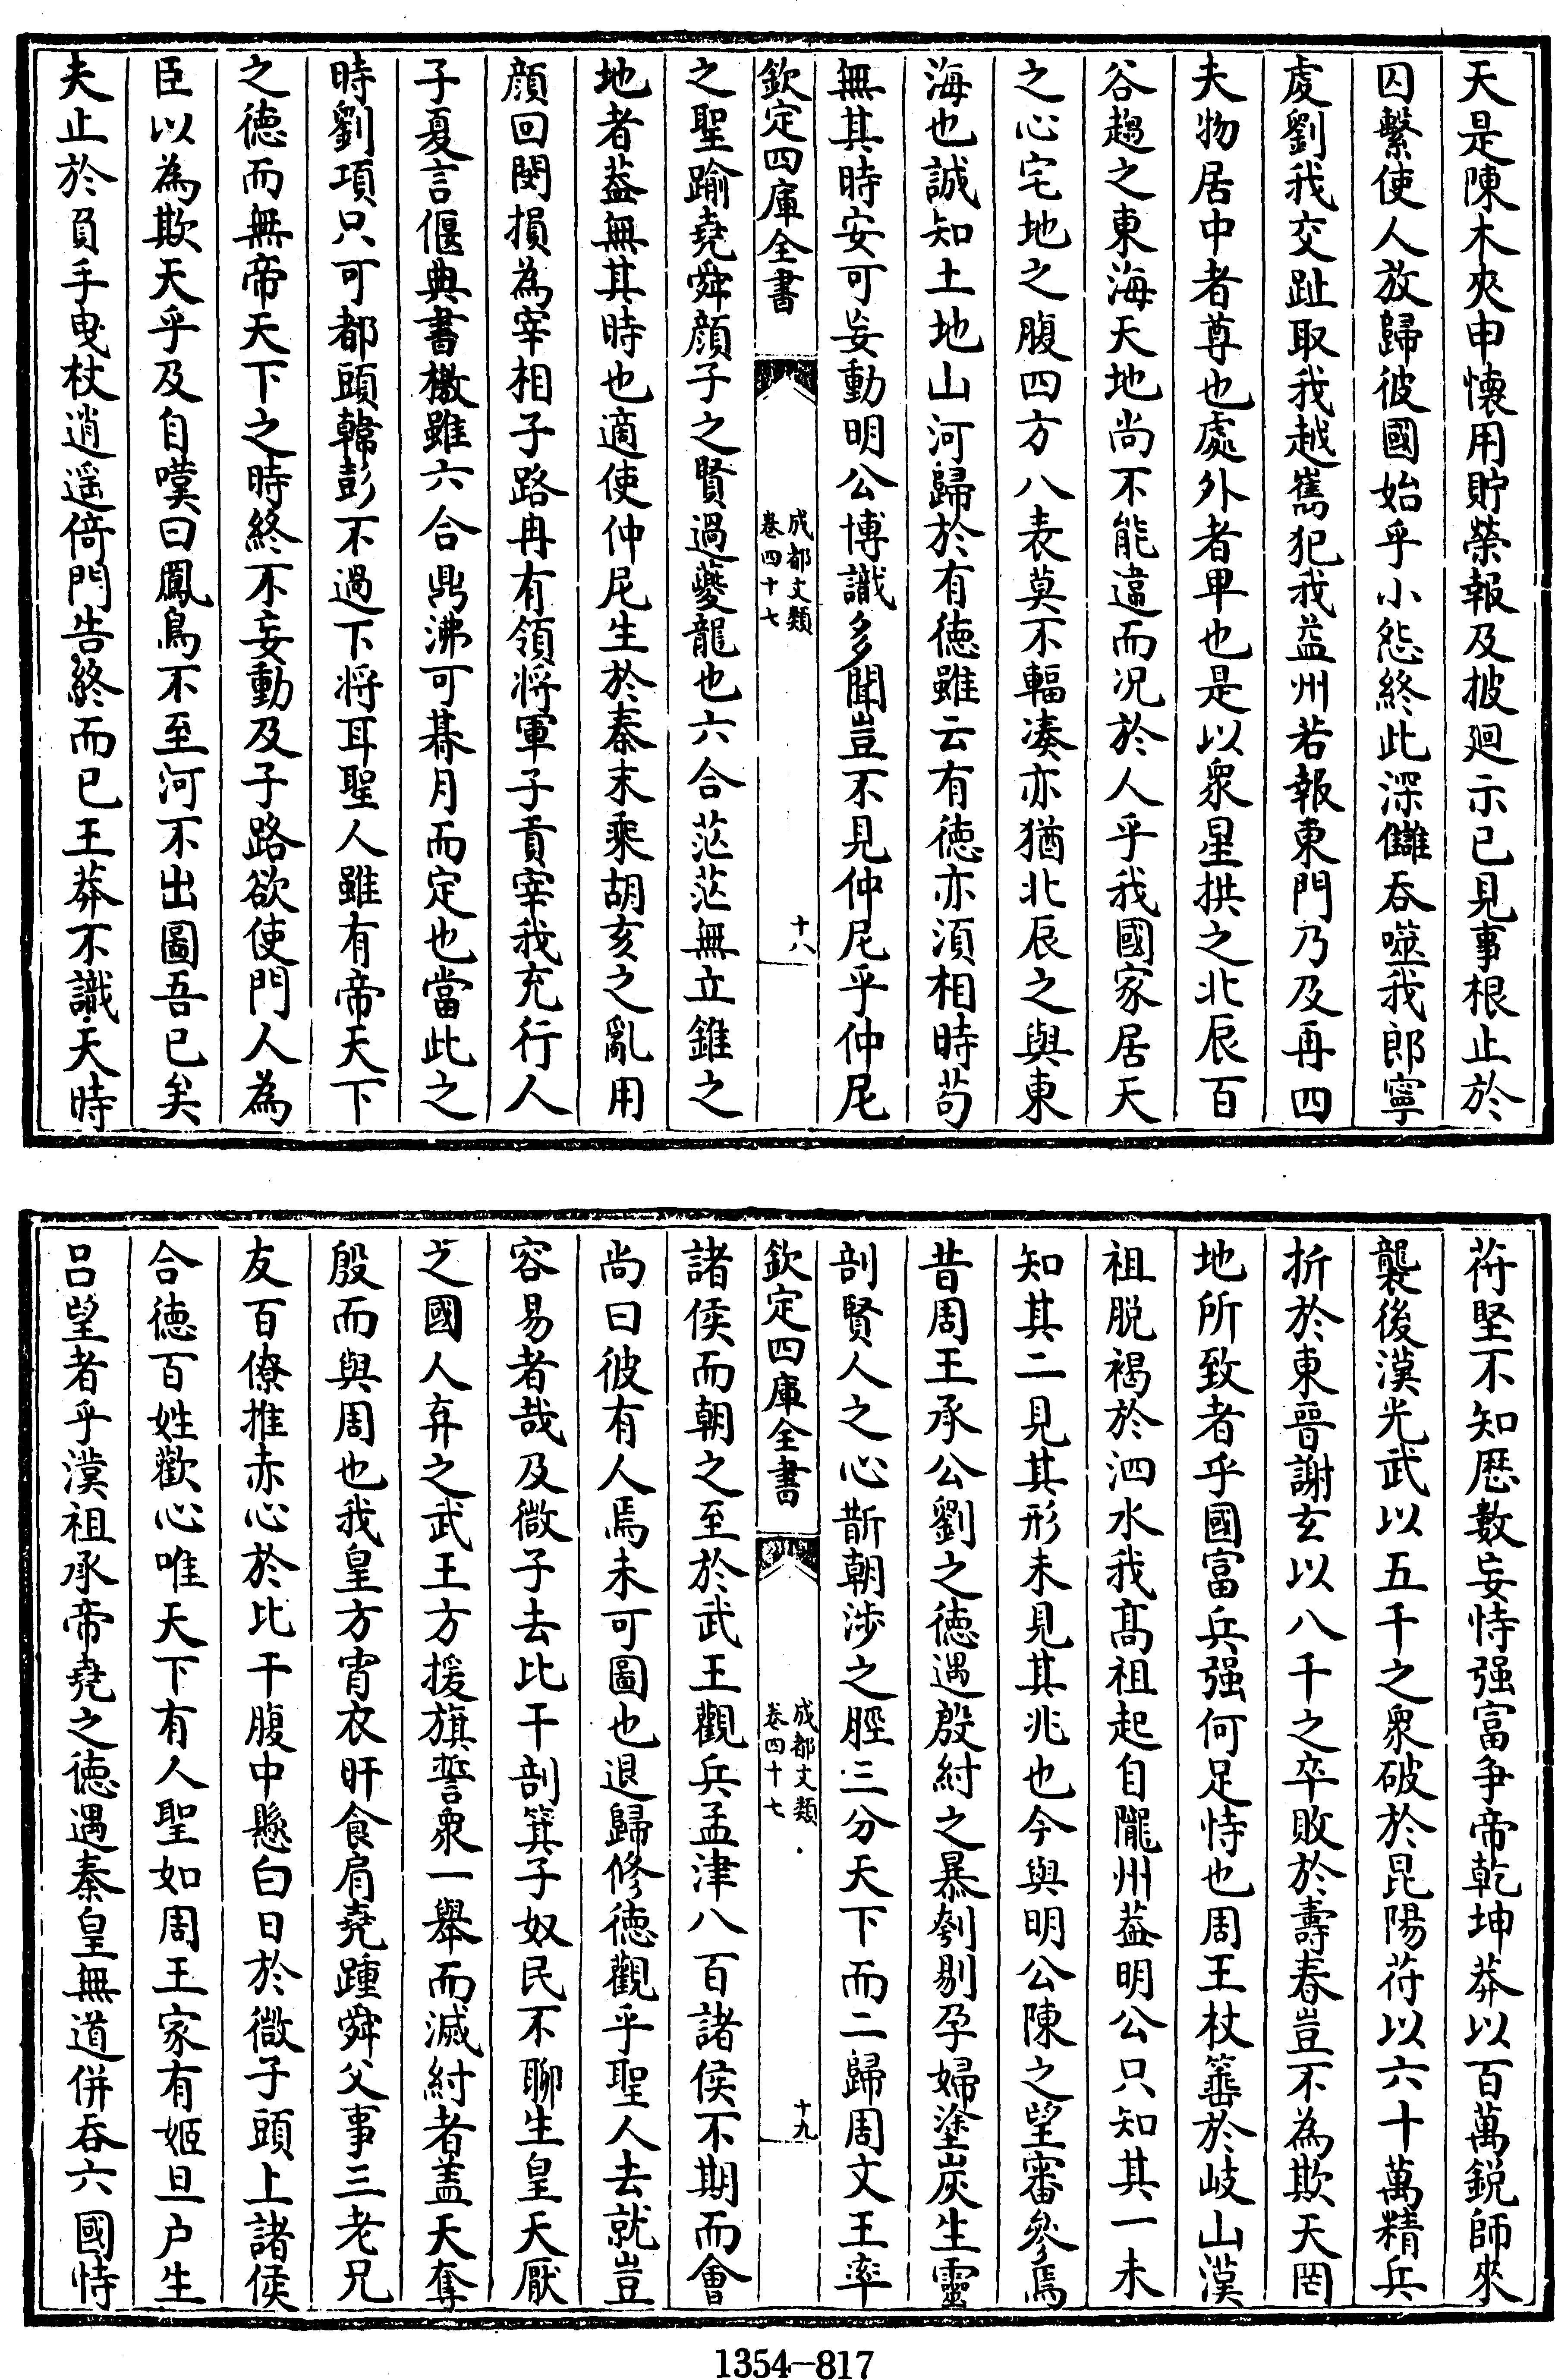 天是陳木夾申懐用貯榮報及披廻示已見事根止於
囚繫使人放歸彼國始乎小怨終此深讎吞噬我郎寧
虔劉我交趾取我越嶲犯我益州若報東門乃及再四
夫物居中者尊也處外者卑也是以衆星拱之北辰百
谷趨之東海天地尚不能違而况於人乎我國家居天
之心宅地之腹四方八表莫不輻凑亦猶北辰之與東
海也誠知土地山河歸於有徳雖云有徳亦湏相時茍
無其時安可妄動明公博識多聞豈不見仲尼乎仲尼
欽定四庫全書
成都文類
卷四十七
十八
之聖踰堯舜顔子之賢過夔龍也六合茫茫無立錐之
地者葢無其時也適使仲尼生於秦末乘胡亥之亂用
顔回閔損為宰相子路冉有領將軍子貢宰我充行人
子夏言偃典書檄雖六合鼎沸可朞月而定也當此之
時劉項只可都頭韓彭不過下將耳聖人雖有帝天下
之徳而無帝天下之時終不妄動及子路欲使門人為
臣以為欺天乎及自嘆曰鳳鳥不至河不出圖吾已矣
夫止於負手曳杖逍遥倚門告終而已王莽不識天時
苻堅不知厯數妄恃强富争帝乾坤莽以百萬銳師來
襲後漢光武以五千之衆破於昆陽苻以六十萬精兵
折於東晉謝玄以八千之卒敗於壽春豈不為欺天罔
地所致者乎國富兵强何足恃也周王杖箠於岐山漢
祖脱褐於泗水我髙祖起自隴州葢明公只知其一未
知其二見其形未見其兆也今與明公陳之望審參焉
昔周王承公劉之徳遇殷紂之暴刳剔孕婦塗炭生靈
剖賢人之心斮朝涉之脛三分天下而二歸周文王率
欽定四庫全書
成都文類
卷四十七
十九
諸侯而朝之至於武王觀兵孟津八百諸侯不期而會
尚曰彼有人焉未可圖也退歸修徳觀乎聖人去就豈
容易者哉及微子去比干剖箕子奴民不聊生皇天厭
之國人弃之武王方援旗誓衆一舉而滅紂者葢天奪
殷而與周也我皇方宵衣旰食肩堯踵舜父事三老兄
友百僚推赤心於比干腹中懸白日於微子頭上諸侯
合徳百姓歡心唯天下有人聖如周王家有姬旦户生
吕望者乎漢祖承帝堯之徳遇秦皇無道併吞六國恃
1354—817